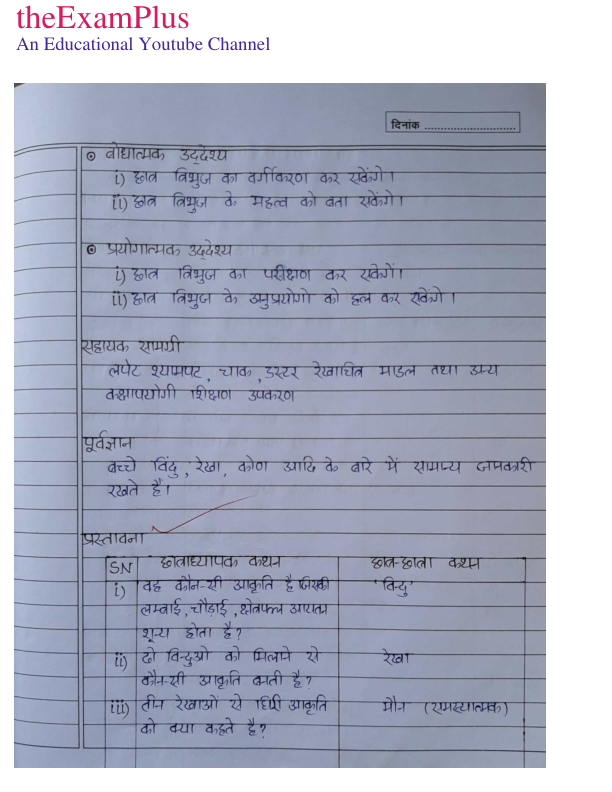 theExamPlus
An Educational Youtube Channel
दिनांक ..............................
⊙ बोधात्मक उद्देश्य
i) छात्र त्रिभुज का वर्गीकरण कर सकेंगे।
ii) छात्र त्रिभुज के महत्व को बता सकेंगे।
⊙ प्रयोगात्मक उद्देश्य
i) छात्र त्रिभुज का परीक्षण कर सकेगें।
ii) छात्र त्रिभुज के अनुप्रयोगो को हल कर सकेंगे।
सहायक सामग्री
लपेट श्यामपट, चाक, डस्टर रेखाचित्र माडल तथा अन्य
कक्षापयोगी शिक्षण उपकरण
पूर्वज्ञान
बच्चे बिंदु, रेखा, कोण आदि के बारे में सामान्य जानकारी
रखते हैं।
प्रस्तावना
SN छात्राध्यापक कथन छात्र-छात्रा कथन
i) वह कौन-सी आकृति है जिसकी 'बिन्दु'
लम्बाई, चौड़ाई, क्षेत्रफल आयतन
शून्य होता है?
ii) दो बिन्दुओ को मिलाने से रेखा
कौन-सी आकृति बनती है?
iii) तीन रेखाओं से घिरी आकृति मौन (समस्यात्मक)
को क्या कहते है?